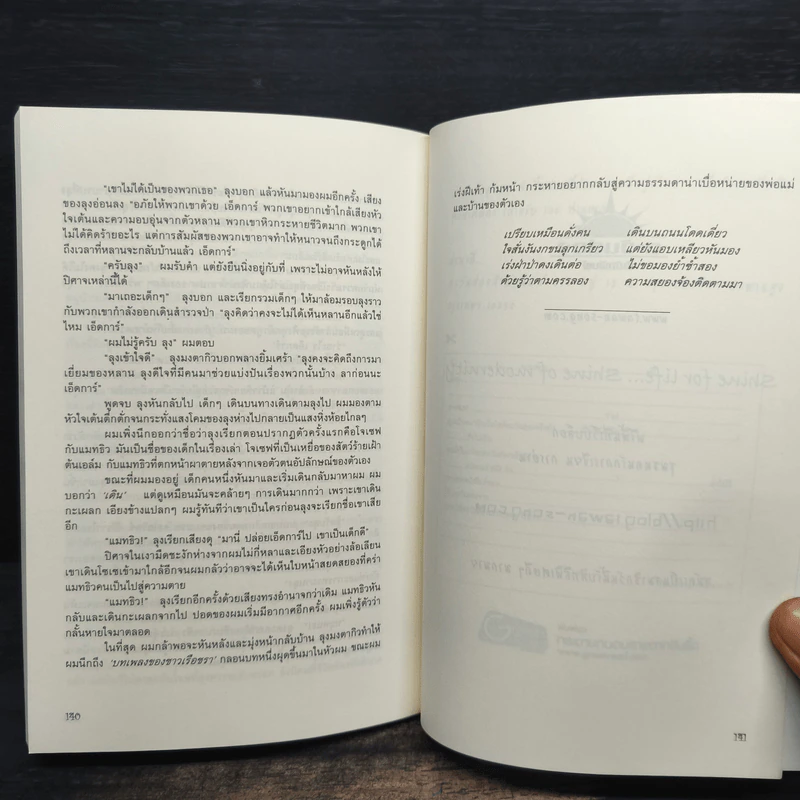 "เขาไม่ได้เป็นของพวกเธอ" ลุงบอก แล้วหันมามองผมอีกครั้ง เสียง
ของลุงอ่อนลง "อภัยให้พวกเขาด้วย เอ็ดการ์ พวกเขาอยากเข้าใกล้เสียงหัว
ใจเต้นและความอบอุ่นจากตัวหลาน พวกเขาหิวกระหายชีวิตมาก พวกเขา
ไม่ได้คิดร้ายอะไร แต่การสัมผัสของพวกเขาอาจทำให้หนาวจนถึงกระดูกได้
ถึงเวลาที่หลานจะกลับบ้านแล้ว เอ็ดการ์"
"ครับลุง" ผมรับคำ แต่ยังยืนนิ่งอยู่กับที่ เพราะไม่อาจหันหลังให้
ปีศาจเหล่านี้ได้
"มาเถอะเด็กๆ" ลุงบอก และเรียกรวมเด็กๆ ให้มาล้อมรอบลุงราว
กับพวกเขากำลังออกเดินสำรวจป่า "ลุงคิดว่าคงจะไม่ได้เห็นหลานอีกแล้วใช่
ไหม เอ็ดการ์"
"ผมไม่รู้ครับ ลุง" ผมตอบ
"ลุงเข้าใจดี" ลุงมงตากิวบอกพลางยิ้มเศร้า "ลุงคงจะคิดถึงการมา
เยี่ยมของหลาน ลุงดีใจที่มีคนมาช่วยแบ่งปันเรื่องพวกนั้นบ้าง ลาก่อนนะ
เอ็ดการ์"
พูดจบ ลุงหันกลับไป เด็กๆ เดินบนทางเดินตามลุงไป ผมมองตาม
หัวใจเต้นตึกตักจนกระทั่งแสงโคมของลุงห่างไปกลายเป็นแสงหิ่งห้อยไกลๆ
ผมเพิ่งนึกออกว่าชื่อว่าลุงเรียกตอนปรากฏตัวครั้งแรกคือโจเซฟ
กับแมทธิว มันเป็นชื่อของเด็กในเรื่องเล่า โจเซฟที่เป็นเหยื่อของสัตว์ร้ายเฝ้า
ต้นเอล์ม กับแมทธิวที่ตกหน้าผาตายหลังจากเจอตัวตนอัปลักษณ์ของตัวเอง
ขณะที่ผมมองอยู่ เด็กคนหนึ่งหันหลังและเริ่มเดินกลับมาหาผม ผม
บอกว่า 'เดิน' แต่ดูเหมือนมันจะคล้ายๆ การเดินมากกว่า เพราะเขาเดิน
กะเผลก เอียงข้างแปลกๆ ผมรู้ทันทีว่าเขาเป็นใครก่อนลุงจะเรียกชื่อเขาเสีย
อีก
"แมทธิว!" ลุงเรียกเสียงดุ "มานี่ ปล่อยเอ็ดการ์ไป เขาเป็นเด็กดี"
ปีศาจในเงามืดชะงักห่างจากผมไม่กี่หลาและเอียงหัวอย่างล้อเลียน
เขาเดินโซเซเข้ามาใกล้อีกจนผมกลัวว่าอาจจะได้เห็นใบหน้าสยดสยองที่คร่า
แมทธิวคนเป็นไปสู่ความตาย
"แมทธิว!" ลุงเรียกอีกครั้งด้วยเสียงทรงอำนาจกว่าเดิม แมทธิวหัน
กลับและเดินกะเผลกจากไป ปอดของผมเริ่มมีอากาศอีกครั้ง ผมเพิ่งรู้ตัวว่า
กลั้นหายใจมาตลอด
ในที่สุด ผมกล้าพอจะหันหลังและมุ่งหน้ากลับบ้าน ลุงมงตากิวทำให้
ผมนึกถึง 'บทเพลงของชาวเรือชรา' กลอนบทหนึ่งผุดขึ้นมาในหัวผม ขณะผม
140
เร่งฝีเท้า ก้มหน้า กระหายอยากกลับสู่ความธรรมดาน่าเบื่อหน่ายของพ่อแม่
และบ้านของตัวเอง
เปรียบเหมือนดั่งคน เดินบนถนนโดดเดี่ยว
ใจสั่นงันงกขนลุกเกรียว แต่ยังแอบเหลียวหันมอง
เร่งฝ่าป่าดงเดินต่อ ไม่ขอมองย้ำซ้ำสอง
ด้วยรู้ว่าตามครรลอง ความสยองจ้องติดตามมา
141